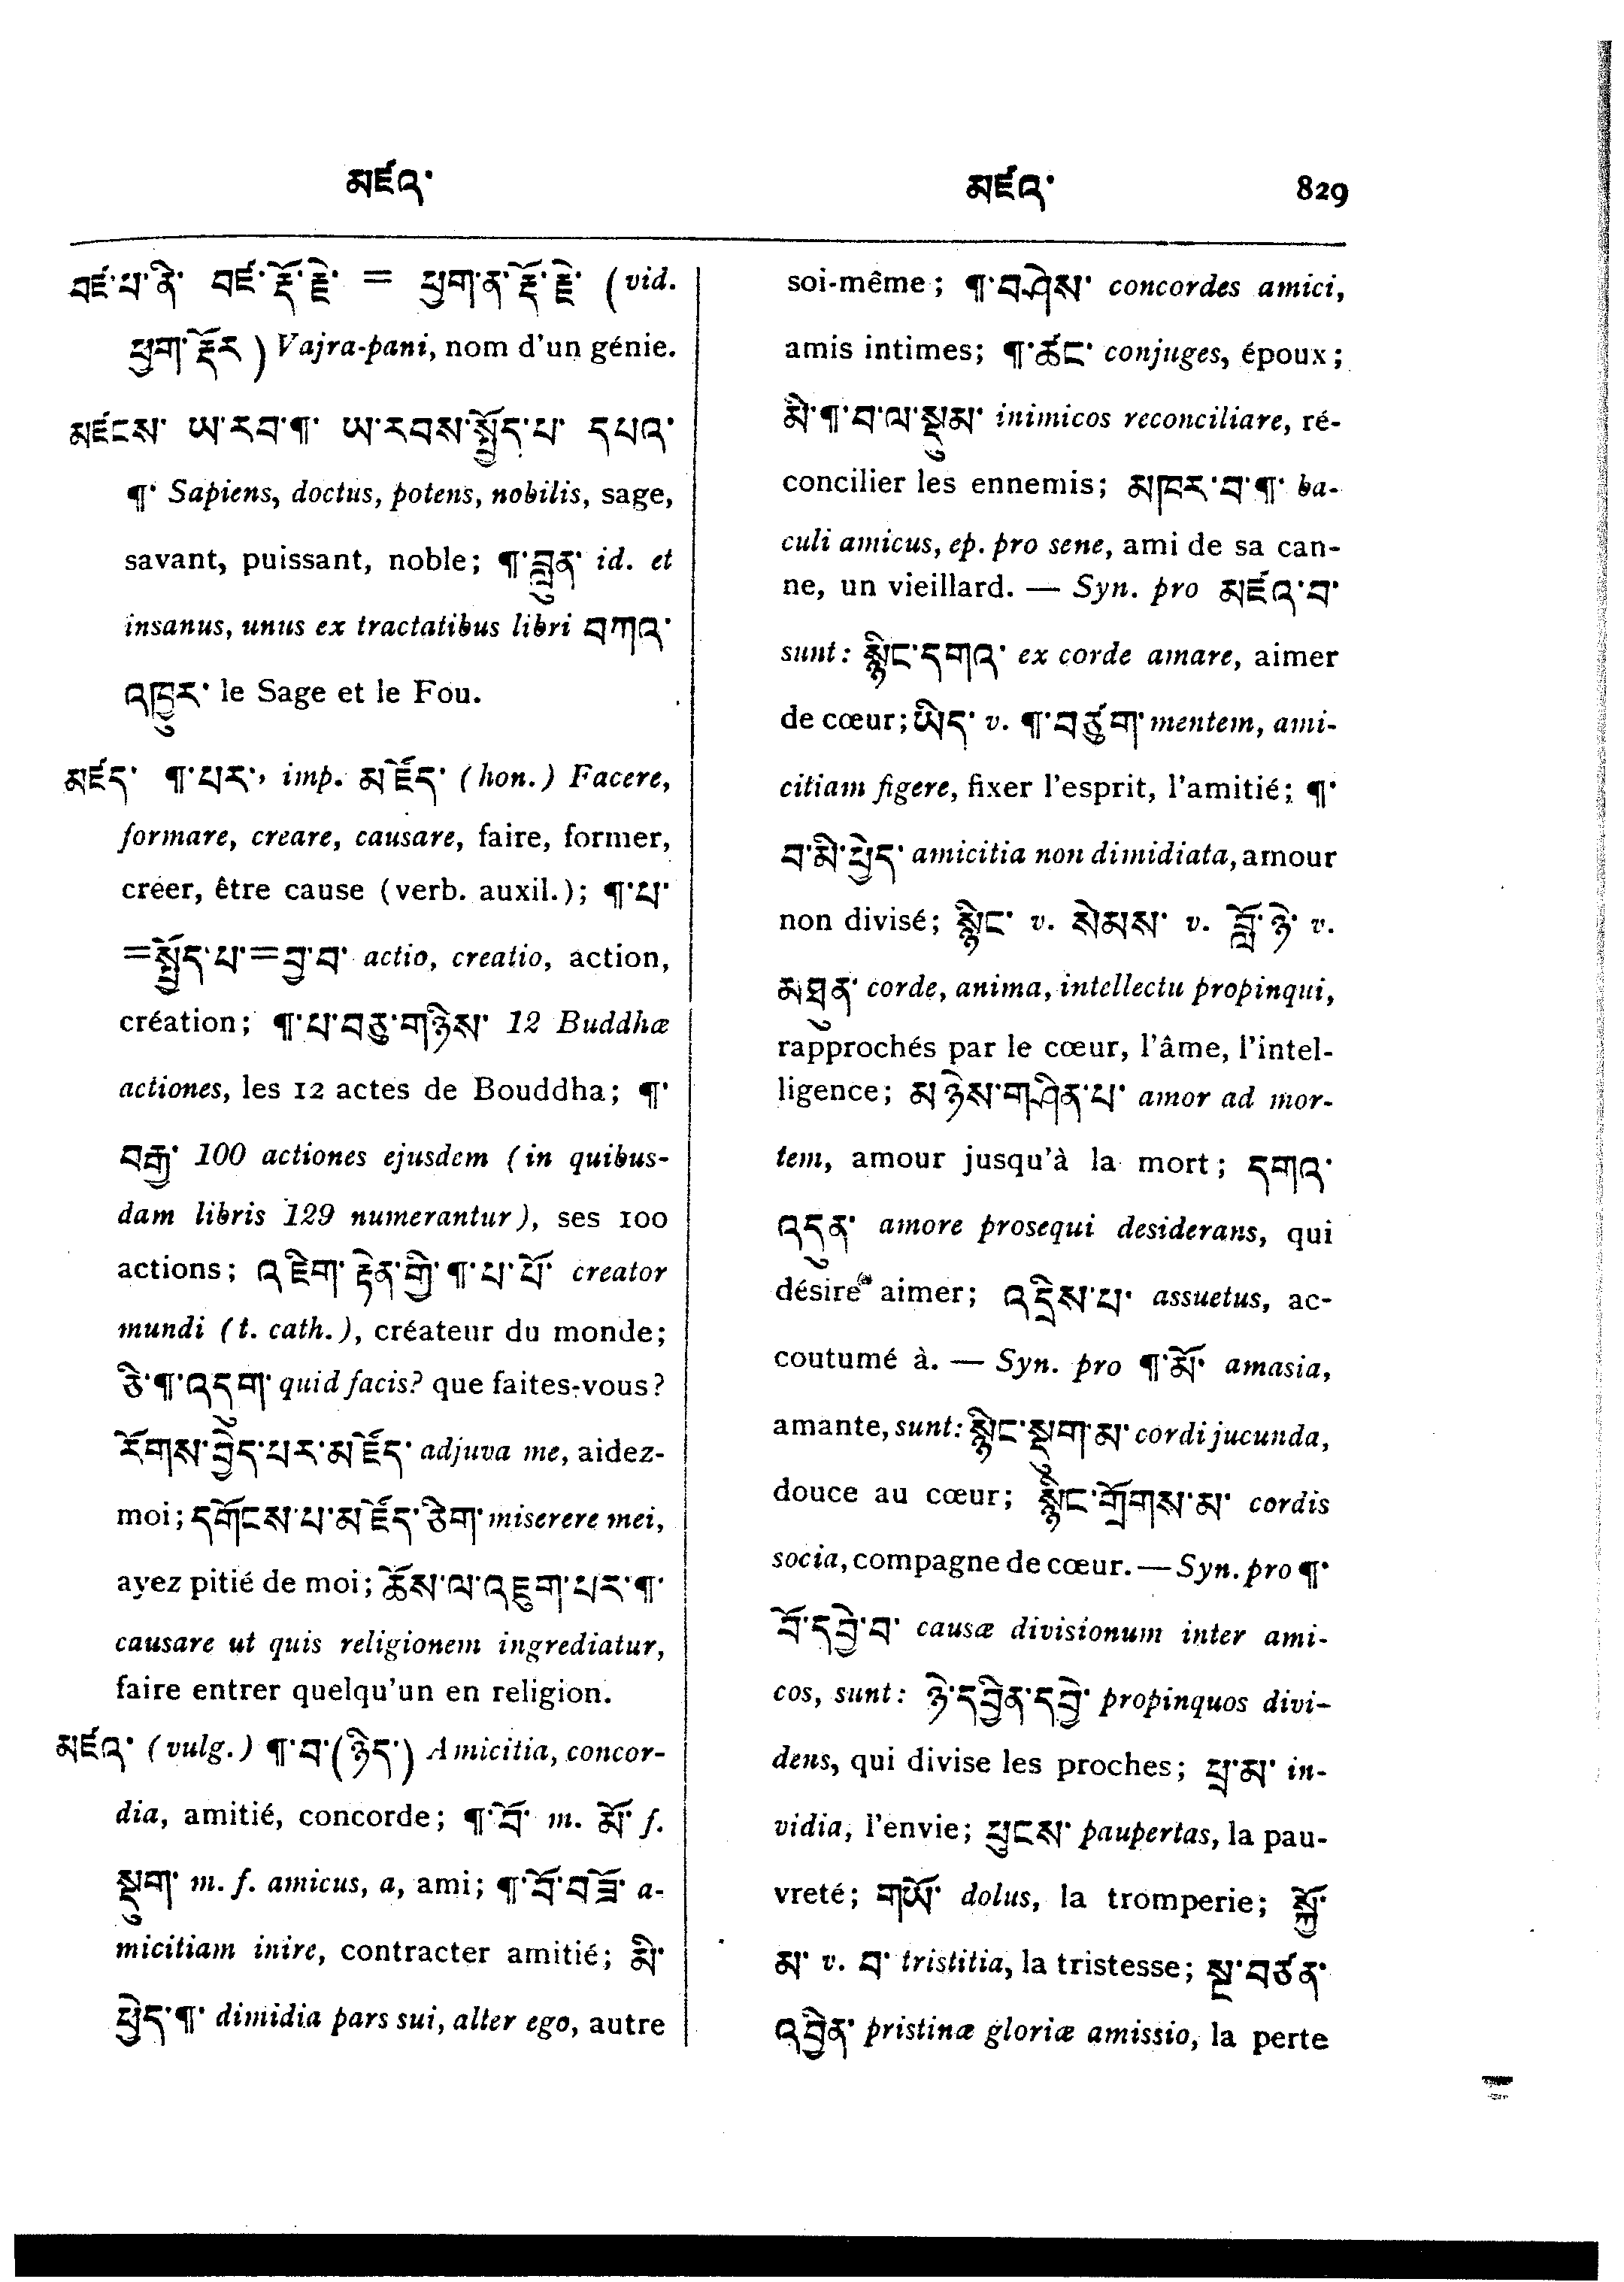 མཛའ་ མཛའ་ 829
བཛ་པ་ནི་ བཛ་རྡོ་རྗེ་ = ཕྱག་ན་རྡོ་རྗེ་ (vid.
ཕྱག་རྡོར) Vajra-pani, nom d'un génie.
མཛངས་ ཡ་རབ་¶་ ཡ་རབས་སྤྱོད་པ་ དཔའ་
¶་ Sapiens, doctus, potens, nobilis, sage,
savant, puissant, noble; ¶་བླུན་ id. et
insanus, unus ex tractatibus libri བཀའ་
འཁུར་ le Sage et le Fou.
མཛད་ ¶་པར་, imp. མཛོད་ (hon.) Facere,
formare, creare, causare, faire, former,
créer, être cause (verb. auxil.); ¶་པ་
=སྤྱོད་པ་=བྱ་བ་ actio, creatio, action,
création; ¶་པ་བཅུ་གཉིས་ 12 Buddhæ
actiones, les 12 actes de Bouddha; ¶་
བརྒྱ་ 100 actiones ejusdem (in quibus-
dam libris 129 numerantur), ses 100
actions; འཇིག་རྟེན་གྱི་¶་པ་པོ་ creator
mundi (t. cath.), créateur du monde;
ཅི་¶་འདུག་ quid facis? que faites-vous?
རོགས་བྱེད་པར་མཛོད་ adjuva me, aidez-
moi; དགོངས་པ་མཛོད་ཅིག་ miserere mei,
ayez pitié de moi; ཆོས་ལ་འཇུག་པར་¶་
causare ut quis religionem ingrediatur,
faire entrer quelqu'un en religion.
མཛའ་ (vulg.) ¶་བ་(ཉིད་) Amicitia, concor-
dia, amitié, concorde; ¶་བོ་ m. མོ་ f.
སྡུག་ m. f. amicus, a, ami; ¶་བོ་བཟོ་ a-
micitiam inire, contracter amitié; མི་
ཕྱེད་¶་ dimidia pars sui, alter ego, autre
soi-même; ¶་བཤེས་ concordes amici,
amis intimes; ¶་ཚང་ conjuges, époux;
མི་¶་བ་ལ་སྡུམ་ inimicos reconciliare, ré-
concilier les ennemis; མཁར་བ་¶་ ba-
culi amicus, ep. pro sene, ami de sa can-
ne, un vieillard. — Syn. pro མཛའ་བ་
sunt: སྙིང་དགའ་ ex corde amare, aimer
de cœur; ཡིད་ v. ¶་བཙུག་ mentem, ami-
citiam figere, fixer l'esprit, l'amitié; ¶་
བ་མི་ཕྱེད་ amicitia non dimidiata, amour
non divisé; སྙིང་ v. སེམས་ v. བློ་ཉེ་ v.
མཐུན་ corde, anima, intellectu propinqui,
rapprochés par le cœur, l'âme, l'intel-
ligence; མཉེས་གཤིན་པ་ amor ad mor-
tem, amour jusqu'à la mort; དགའ་
འདུན་ amore prosequi desiderans, qui
désire aimer; འདྲིས་པ་ assuetus, ac-
coutumé à. — Syn. pro ¶་མོ་ amasia,
amante, sunt: སྙིང་སྡུག་མ་ cordi jucunda,
douce au cœur; སྙིང་གྲོགས་མ་ cordis
socia, compagne de cœur. — Syn. pro ¶་
བོ་དབྱེ་བ་ causæ divisionum inter ami-
cos, sunt: ཉེ་དབྱིན་དབྱེ་ propinquos divi-
dens, qui divise les proches; ཕྲ་མ་ in-
vidia, l'envie; ཕུངས་ paupertas, la pau-
vreté; གཡོ་ dolus, la tromperie; སྐྱོ་
མ་ v. བ་ tristitia, la tristesse; སྔ་བཙན་
འབྱིན་ pristinæ gloriæ amissio, la perte